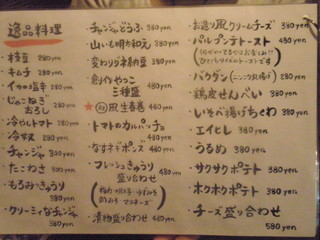 逸品料理
・枝豆 280yen
・キムチ 380yen
・イカの塩辛 380yen
・じゃこねぎおろし 380yen
・冷やしトマト 380yen
・冷奴 380yen
・チャンジャ 380yen
・たこわさ 380yen
・もろみきゅうり 380yen
・クリーミィなチャンジャ 380yen
・チャンジャどうふ 380yen
・山いも明太和え 380yen
・変わりネ納豆 380yen
・創作やっこ三種盛 480yen
風生春巻 480yen
・トマトのカルパッチョ 480yen
・なすネギポンズ 480yen
・フレッシュきゅうり盛り合わせ 480yen
・漬物盛り合わせ 480yen
・お造り風クリームチーズ 380yen
・パルプンテトースト 480yen
・バクダン(ニンニク丸揚げ) 380yen
・鶏皮せんべい 380yen
・いそべ揚げちくわ 380yen
・エイヒレ 380yen
・うるめ 380yen
・サクサクポテト 380yen
・ホクホクポテト 380yen
・チーズ盛り合わせ 580yen